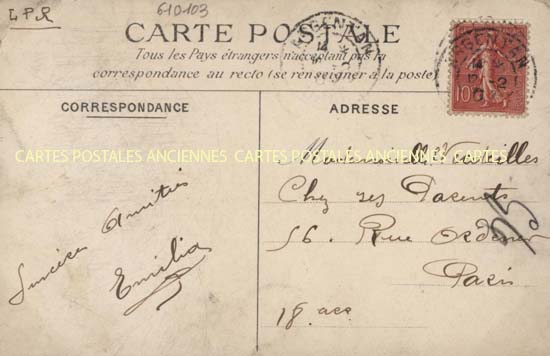 LPR
610-103
CARTE POSTALE
Tous les Pays étrangers n'acceptent pas la
correspondance au recto (se renseigner à la poste)
CORRESPONDANCE
ADRESSE
ARGENTAN
10
CARTES POSTALES ANCIENNES CARTES POSTALES ANCIENNES
Sincères Amitiés
Emilia
Mesdemoiselles
Chez ses Parents
56. Rue Ordener
Paris
18. arr
95